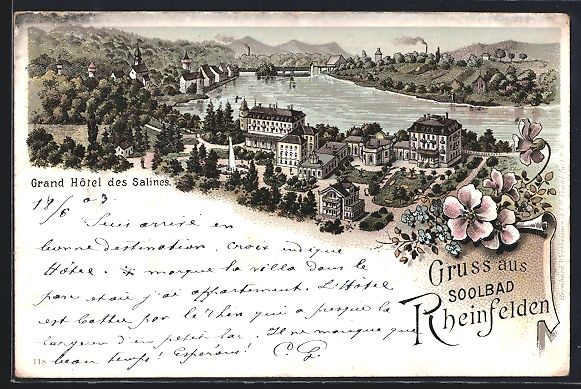 Grand Hôtel des Salines.
19/6 03
Suis arrivé en
bonne destination. Croix indique
Hôtel. * marque la villa dans le
parc et où j'ai appartement. L'Hôtel
est battu par le Rhin qui a presque la
largeur d'un petit lac. Il ne manque que
beau temps! Espérons! C. G.
Gruss aus
SOOLBAD
Rheinfelden
118